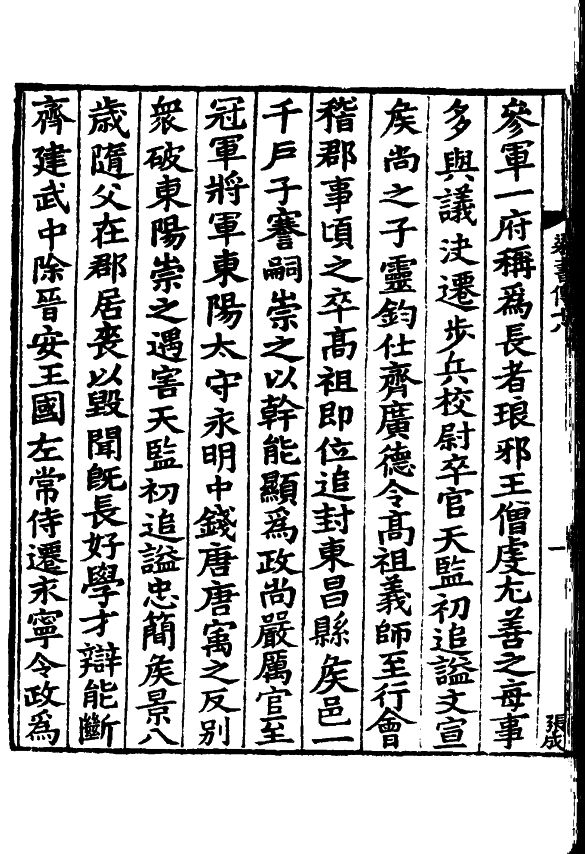 參軍一府稱爲長者琅邪王僧虔尤善之每事
多與議決遷步兵校尉卒官天監初追謚文宣
矦尚之子靈鈞仕齊廣德令高祖義師至行會
稽郡事頃之卒高祖即位追封東昌縣矦邑一
千戶子謇嗣崇之以幹能顯爲政尚嚴厲官至
冠軍將軍東陽太守永明中錢唐唐㝢之反别
衆破東陽崇之遇害天監初追謚忠簡矦景八
歲隨父在郡居喪以毀聞旣長好學才辯能斷
齊建武中除晉安王國左常侍遷永寧令政爲
梁書傳十八
一
張成